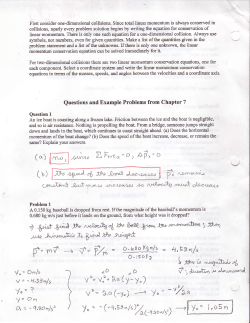 First consider one-dimensional collisions. Since total linear momentum is always conserved in
collisions, nearly every problem solution begins by writing the equation for conservation of
linear momentum. There is only one such equation for a one-dimensional collision. Always use
symbols, not numbers, even for given quantities. Make a list of the quantities given in the
problem statement and a list of the unknowns. If there is only one unknown, the linear
momentum conservation equation can be solved immediately for it.
For two-dimensional collisions there are two linear momentum conservation equations, one for
each component. Select a coordinate system and write the linear momentum conservation
equations in terms of the masses, speeds, and angles between the velocities and a coordinate axis.
Questions and Example Problems from Chapter 7
Question 1
An ice boat is coasting along a frozen lake. Friction between the ice and the boat is negligible,
and so is air resistance. Nothing is propelling the boat. From a bridge, someone jumps straight
down and lands in the boat, which continues to coast straight ahead. (a) Does the horizontal
momentum of the boat change? (b) Does the speed of the boat increase, decrease, or remain the
same? Explain your answers.
(a) no, since
(b) the speed of the boat decreases remains
constant but mass increases so velocity must decrease
Problem 1
A 0.150 kg baseball is dropped from rest. If the magnitude of the baseball's momentum is
0.680 kg·m/s just before it lands on the ground, from what height was it dropped?
first find the velocity of the ball from the momentum, then
use kinematics to find the height
= 4.53 m/s
this is magnitude of
direction is downward
v = -4.53 m/s
y = 0 m
a = -9.80 m/s²
y₀ = 1.05 m